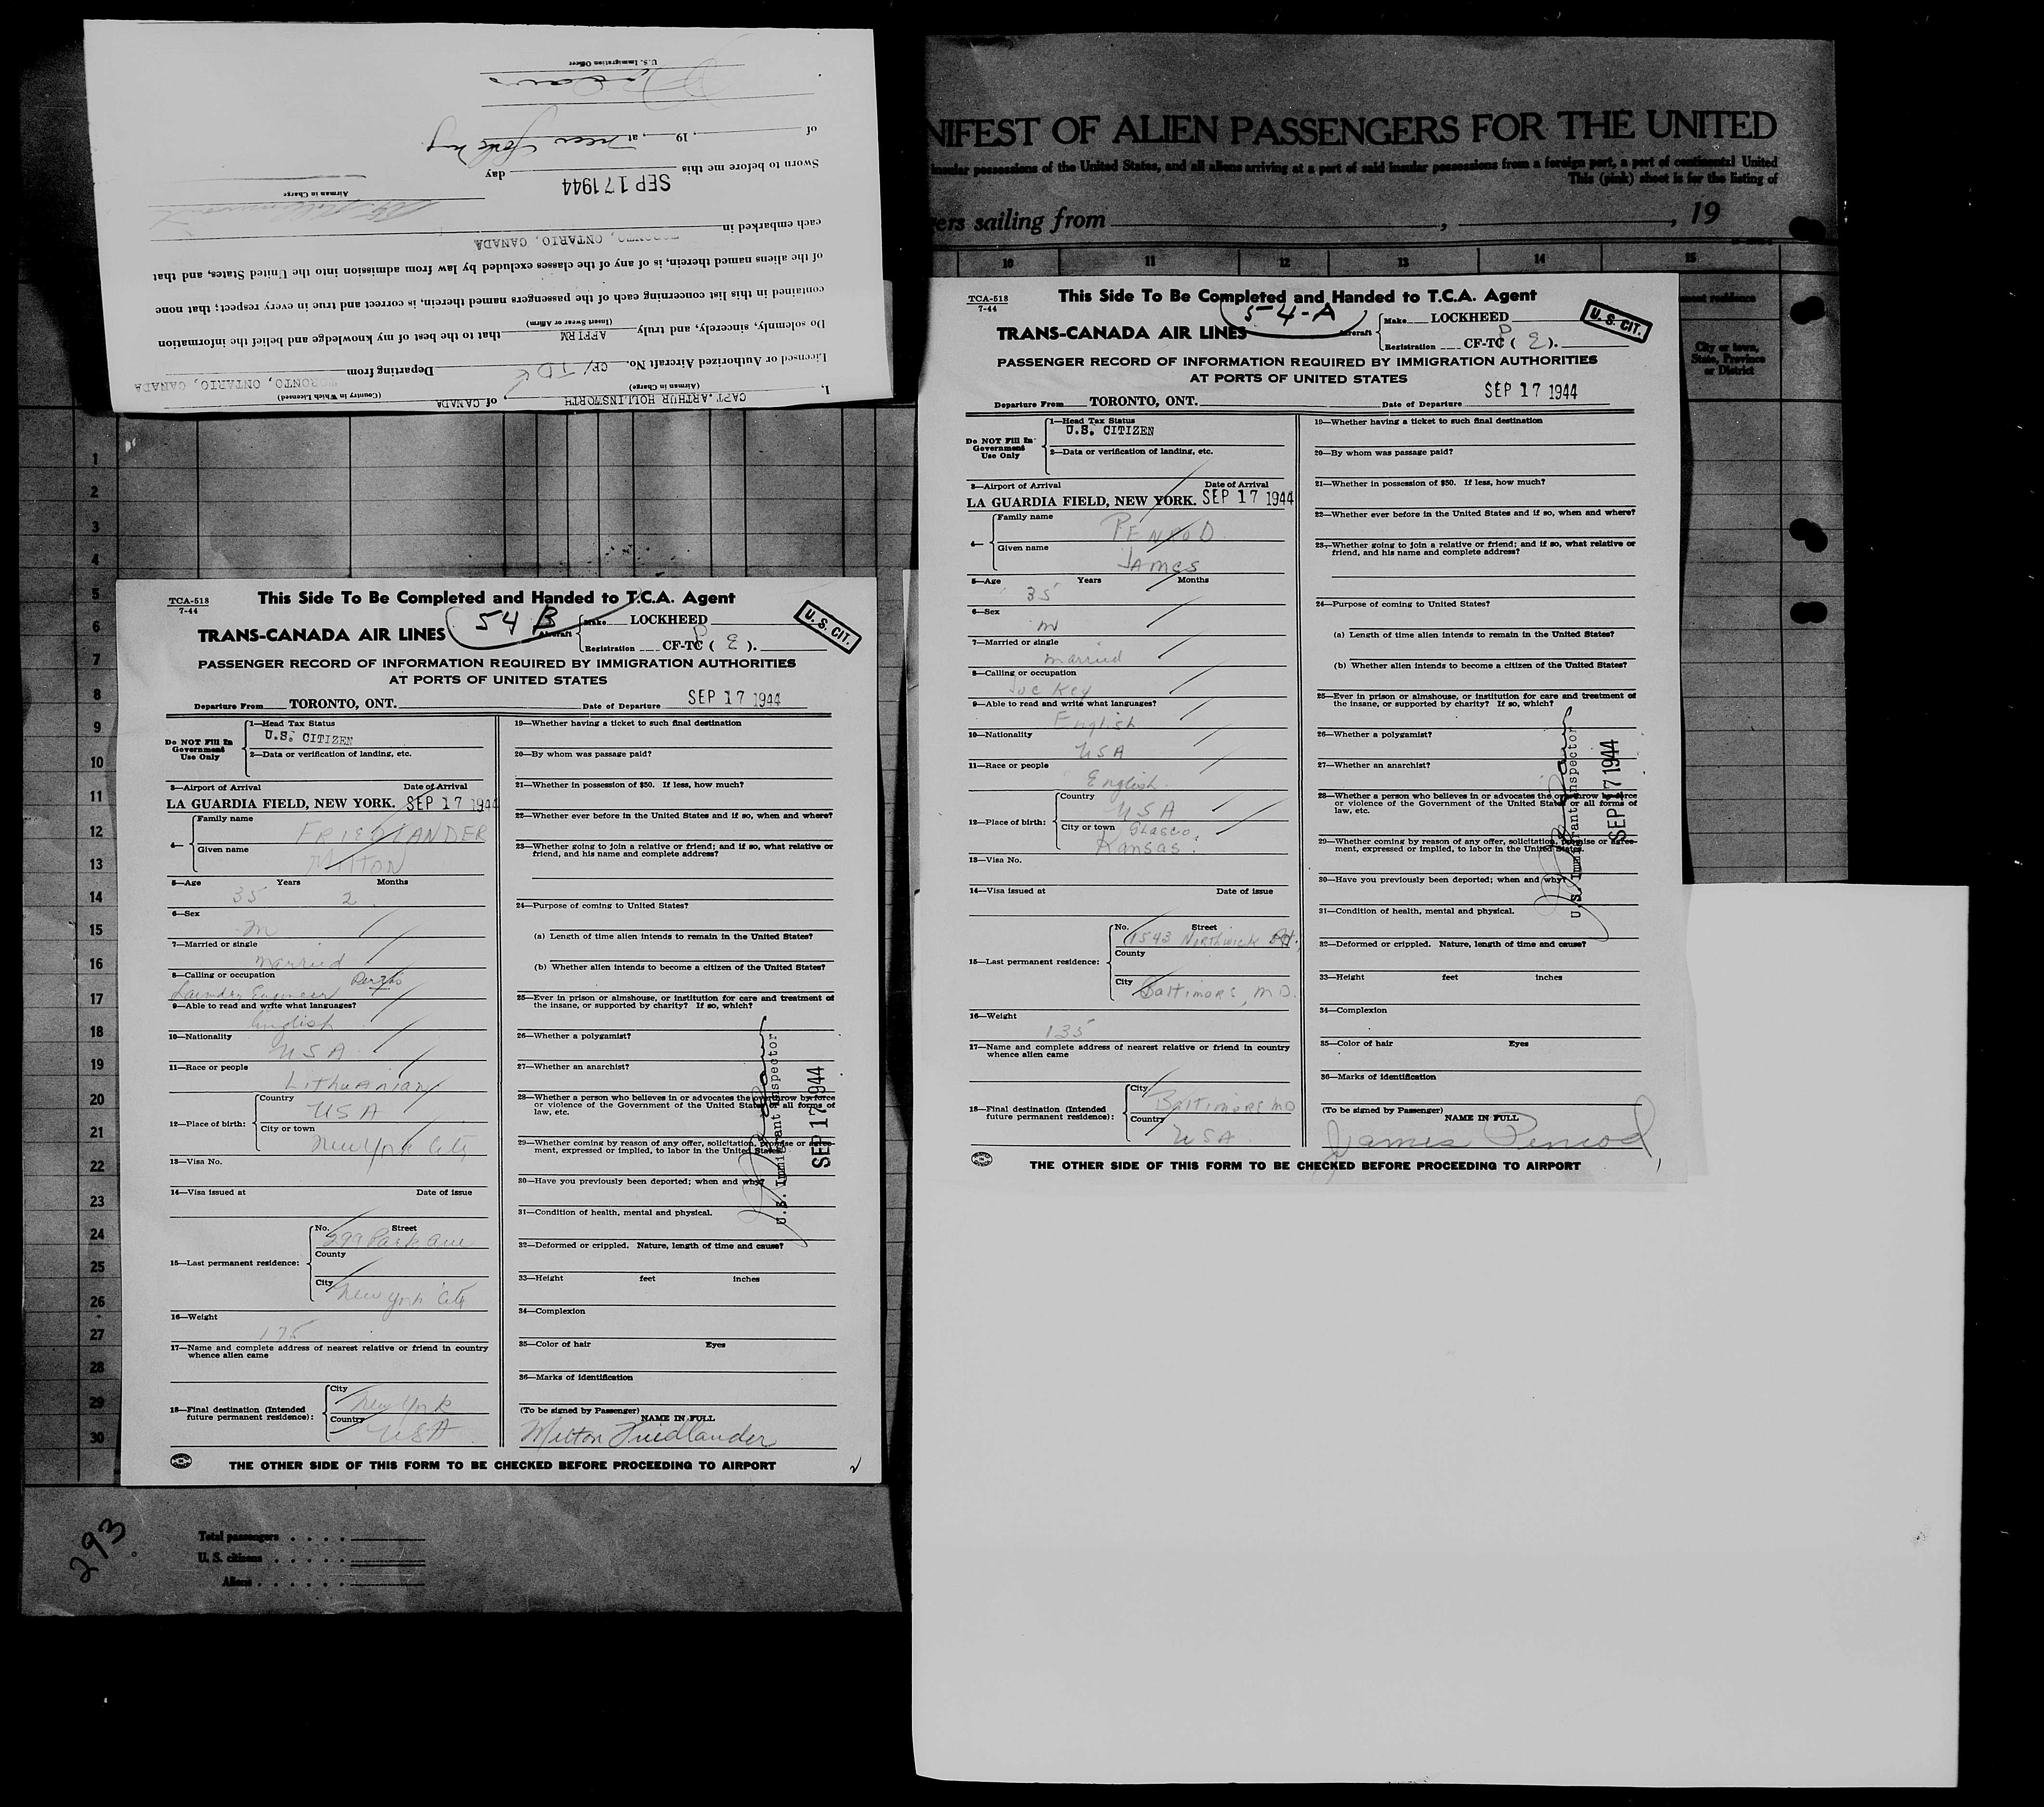 I, CAPT. ARTHUR HOLLINSWORTH of CANADA
(Airman in Charge) (Country in Which Licensed)
Licensed or Authorized Aircraft No. CF/TD Departing from TORONTO, ONTARIO, CANADA
Do solemnly, sincerely, and truly AFFIRM that to the best of my knowledge and belief the information
(Insert Swear or Affirm)
contained in this list concerning each of the passengers named therein, is correct and true in every respect; that none
of the aliens named therein, is of any of the classes excluded by law from admission into the United States, and that
each embarked in TORONTO, ONTARIO, CANADA
Airman in Charge
Sworn to before me this SEP 17 1944 day
of , 19 , at New York NY
U. S. Immigration Officer
1
2
3
4
5
6
7
8
9
10
11
12
13
14
15
16
17
18
19
20
21
22
23
24
25
26
27
28
29
30
TCA-518
7-44
This Side To Be Completed and Handed to T.C.A. Agent
TRANS-CANADA AIR LINES
54 B
Aircraft
Make LOCKHEED
Registration CF-TC ( E ).
U. S. CIT.
PASSENGER RECORD OF INFORMATION REQUIRED BY IMMIGRATION AUTHORITIES
AT PORTS OF UNITED STATES
Departure From TORONTO, ONT. Date of Departure SEP 17 1944
Do NOT Fill In
Government
Use Only
1—Head Tax Status
U.S. CITIZEN
2—Data or verification of landing, etc.
3—Airport of Arrival Date of Arrival
LA GUARDIA FIELD, NEW YORK. SEP 17 1944
4—
Family name FRIEDLANDER
Given name MILTON
5—Age Years Months
35 2
6—Sex
m
7—Married or single
married
8—Calling or occupation
Laundry Engineer
9—Able to read and write what languages?
English
10—Nationality
USA
11—Race or people
Lithuanian
12—Place of birth:
Country
USA
City or town
New York City
13—Visa No.
14—Visa issued at Date of issue
15—Last permanent residence:
No. Street
299 Park Ave
County
City
New York City
16—Weight
175
17—Name and complete address of nearest relative or friend in country
whence alien came
18—Final destination (Intended
future permanent residence):
City
New York
Country
USA
19—Whether having a ticket to such final destination
20—By whom was passage paid?
21—Whether in possession of $50. If less, how much?
22—Whether ever before in the United States and if so, when and where?
23—Whether going to join a relative or friend; and if so, what relative or
friend, and his name and complete address?
24—Purpose of coming to United States?
(a) Length of time alien intends to remain in the United States?
(b) Whether alien intends to become a citizen of the United States?
25—Ever in prison or almshouse, or institution for care and treatment of
the insane, or supported by charity? If so, which?
26—Whether a polygamist?
27—Whether an anarchist?
28—Whether a person who believes in or advocates the overthrow by force
or violence of the Government of the United States or all forms of
law, etc.
29—Whether coming by reason of any offer, solicitation, promise or agree-
ment, expressed or implied, to labor in the United States.
30—Have you previously been deported; when and why?
31—Condition of health, mental and physical.
32—Deformed or crippled. Nature, length of time and cause?
33—Height feet inches
34—Complexion
35—Color of hair Eyes
36—Marks of identification
(To be signed by Passenger)
NAME IN FULL
Milton Friedlander
U.S. Immigrant Inspector
SEP 17 1944
THE OTHER SIDE OF THIS FORM TO BE CHECKED BEFORE PROCEEDING TO AIRPORT
293
Total passengers
U. S. citizens
Aliens
NIFEST OF ALIEN PASSENGERS FOR THE UNITED
insular possessions of the United States, and all aliens arriving at a port of said insular possessions from a foreign port, a port of continental United
This (pink) sheet is for the listing of
ers sailing from , , 19
10 11 12 13 14 15
City or town,
State, Province
or District
TCA-518
7-44
This Side To Be Completed and Handed to T.C.A. Agent
54-A
TRANS-CANADA AIR LINES
Aircraft
Make LOCKHEED
Registration CF-TC ( E ).
U. S. CIT.
PASSENGER RECORD OF INFORMATION REQUIRED BY IMMIGRATION AUTHORITIES
AT PORTS OF UNITED STATES
Departure From TORONTO, ONT. Date of Departure SEP 17 1944
Do NOT Fill In
Government
Use Only
1—Head Tax Status
U.S. CITIZEN
2—Data or verification of landing, etc.
3—Airport of Arrival Date of Arrival
LA GUARDIA FIELD, NEW YORK. SEP 17 1944
4—
Family name PENROD
Given name JAMES
5—Age Years Months
35
6—Sex
m
7—Married or single
married
8—Calling or occupation
Jockey
9—Able to read and write what languages?
English
10—Nationality
USA
11—Race or people
English
12—Place of birth:
Country
USA
City or town Glasco,
Kansas.
13—Visa No.
14—Visa issued at Date of issue
15—Last permanent residence:
No. Street
1543 Northwick Rd.
County
City
Baltimore, MD.
16—Weight
135
17—Name and complete address of nearest relative or friend in country
whence alien came
18—Final destination (Intended
future permanent residence):
City
Baltimore MD
Country
USA
19—Whether having a ticket to such final destination
20—By whom was passage paid?
21—Whether in possession of $50. If less, how much?
22—Whether ever before in the United States and if so, when and where?
23—Whether going to join a relative or friend; and if so, what relative or
friend, and his name and complete address?
24—Purpose of coming to United States?
(a) Length of time alien intends to remain in the United States?
(b) Whether alien intends to become a citizen of the United States?
25—Ever in prison or almshouse, or institution for care and treatment of
the insane, or supported by charity? If so, which?
26—Whether a polygamist?
27—Whether an anarchist?
28—Whether a person who believes in or advocates the overthrow by force
or violence of the Government of the United States or all forms of
law, etc.
29—Whether coming by reason of any offer, solicitation, promise or agree-
ment, expressed or implied, to labor in the United States.
30—Have you previously been deported; when and why?
31—Condition of health, mental and physical.
32—Deformed or crippled. Nature, length of time and cause?
33—Height feet inches
34—Complexion
35—Color of hair Eyes
36—Marks of identification
(To be signed by Passenger)
NAME IN FULL
James Penrod
U.S. Immigrant Inspector
SEP 17 1944
THE OTHER SIDE OF THIS FORM TO BE CHECKED BEFORE PROCEEDING TO AIRPORT